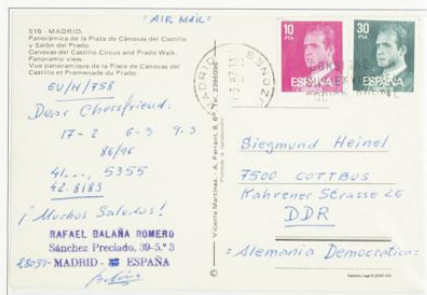 "AIR MAIL"
516 - MADRID.
Panorámica de la Plaza de Cánovas del Castillo
y Salón del Prado.
Canovas del Castillo Circus and Prado Walk.
Panoramic view.
Vue panoramique de la Place de Cánovas del
Castillo et Promenade du Prado.
EU/H/758
Dear Chessfriend:
17-2 6-3 9-3
86/96
41..., 5355
42.8183
¡Muchos Saludos!
RAFAEL BALAÑA ROMERO
Sánchez Preciado, 39-5.º 3
28039- MADRID - ESPAÑA
Vicente Martínez. - A. Farrant, 8, 8º Tel. 2396096
10 PTA
ESPAÑA
30 PTA
ESPAÑA
MADRID
Siegmund Heinel
7500 COTTBUS
Kahrener Strasse 26
DDR
= Alemania Democratica=